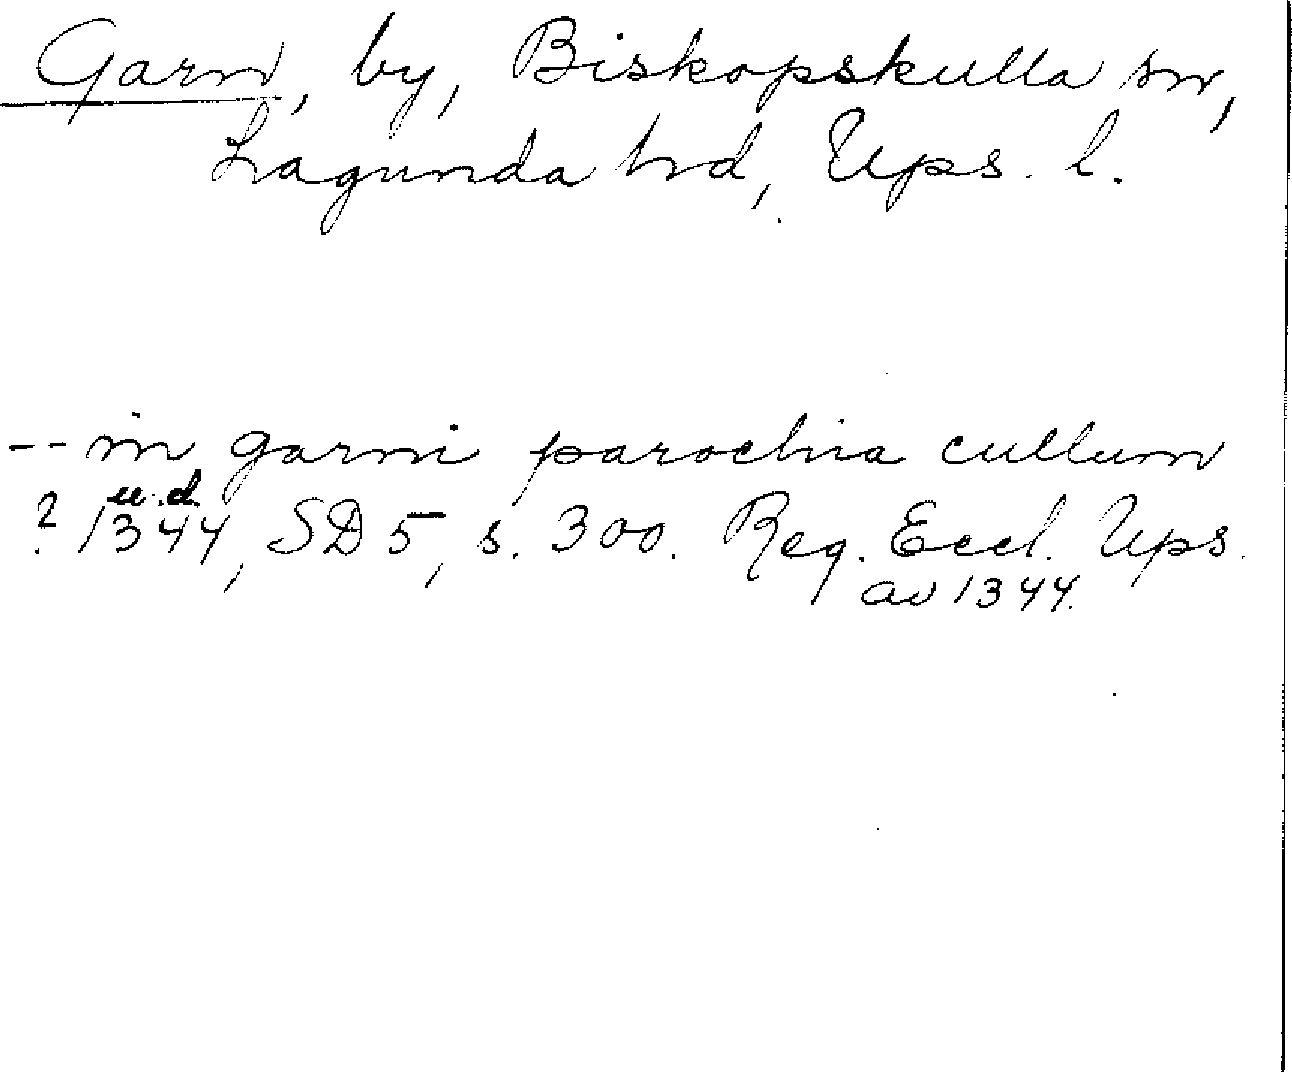 Garn, by, Biskopskulla sn,
Lagunda hd, Ups. l.
-- in garni parochia cullum
u.d.
? 1344, SD 5, s. 300. Reg. Eccl. Ups.
av 1344.